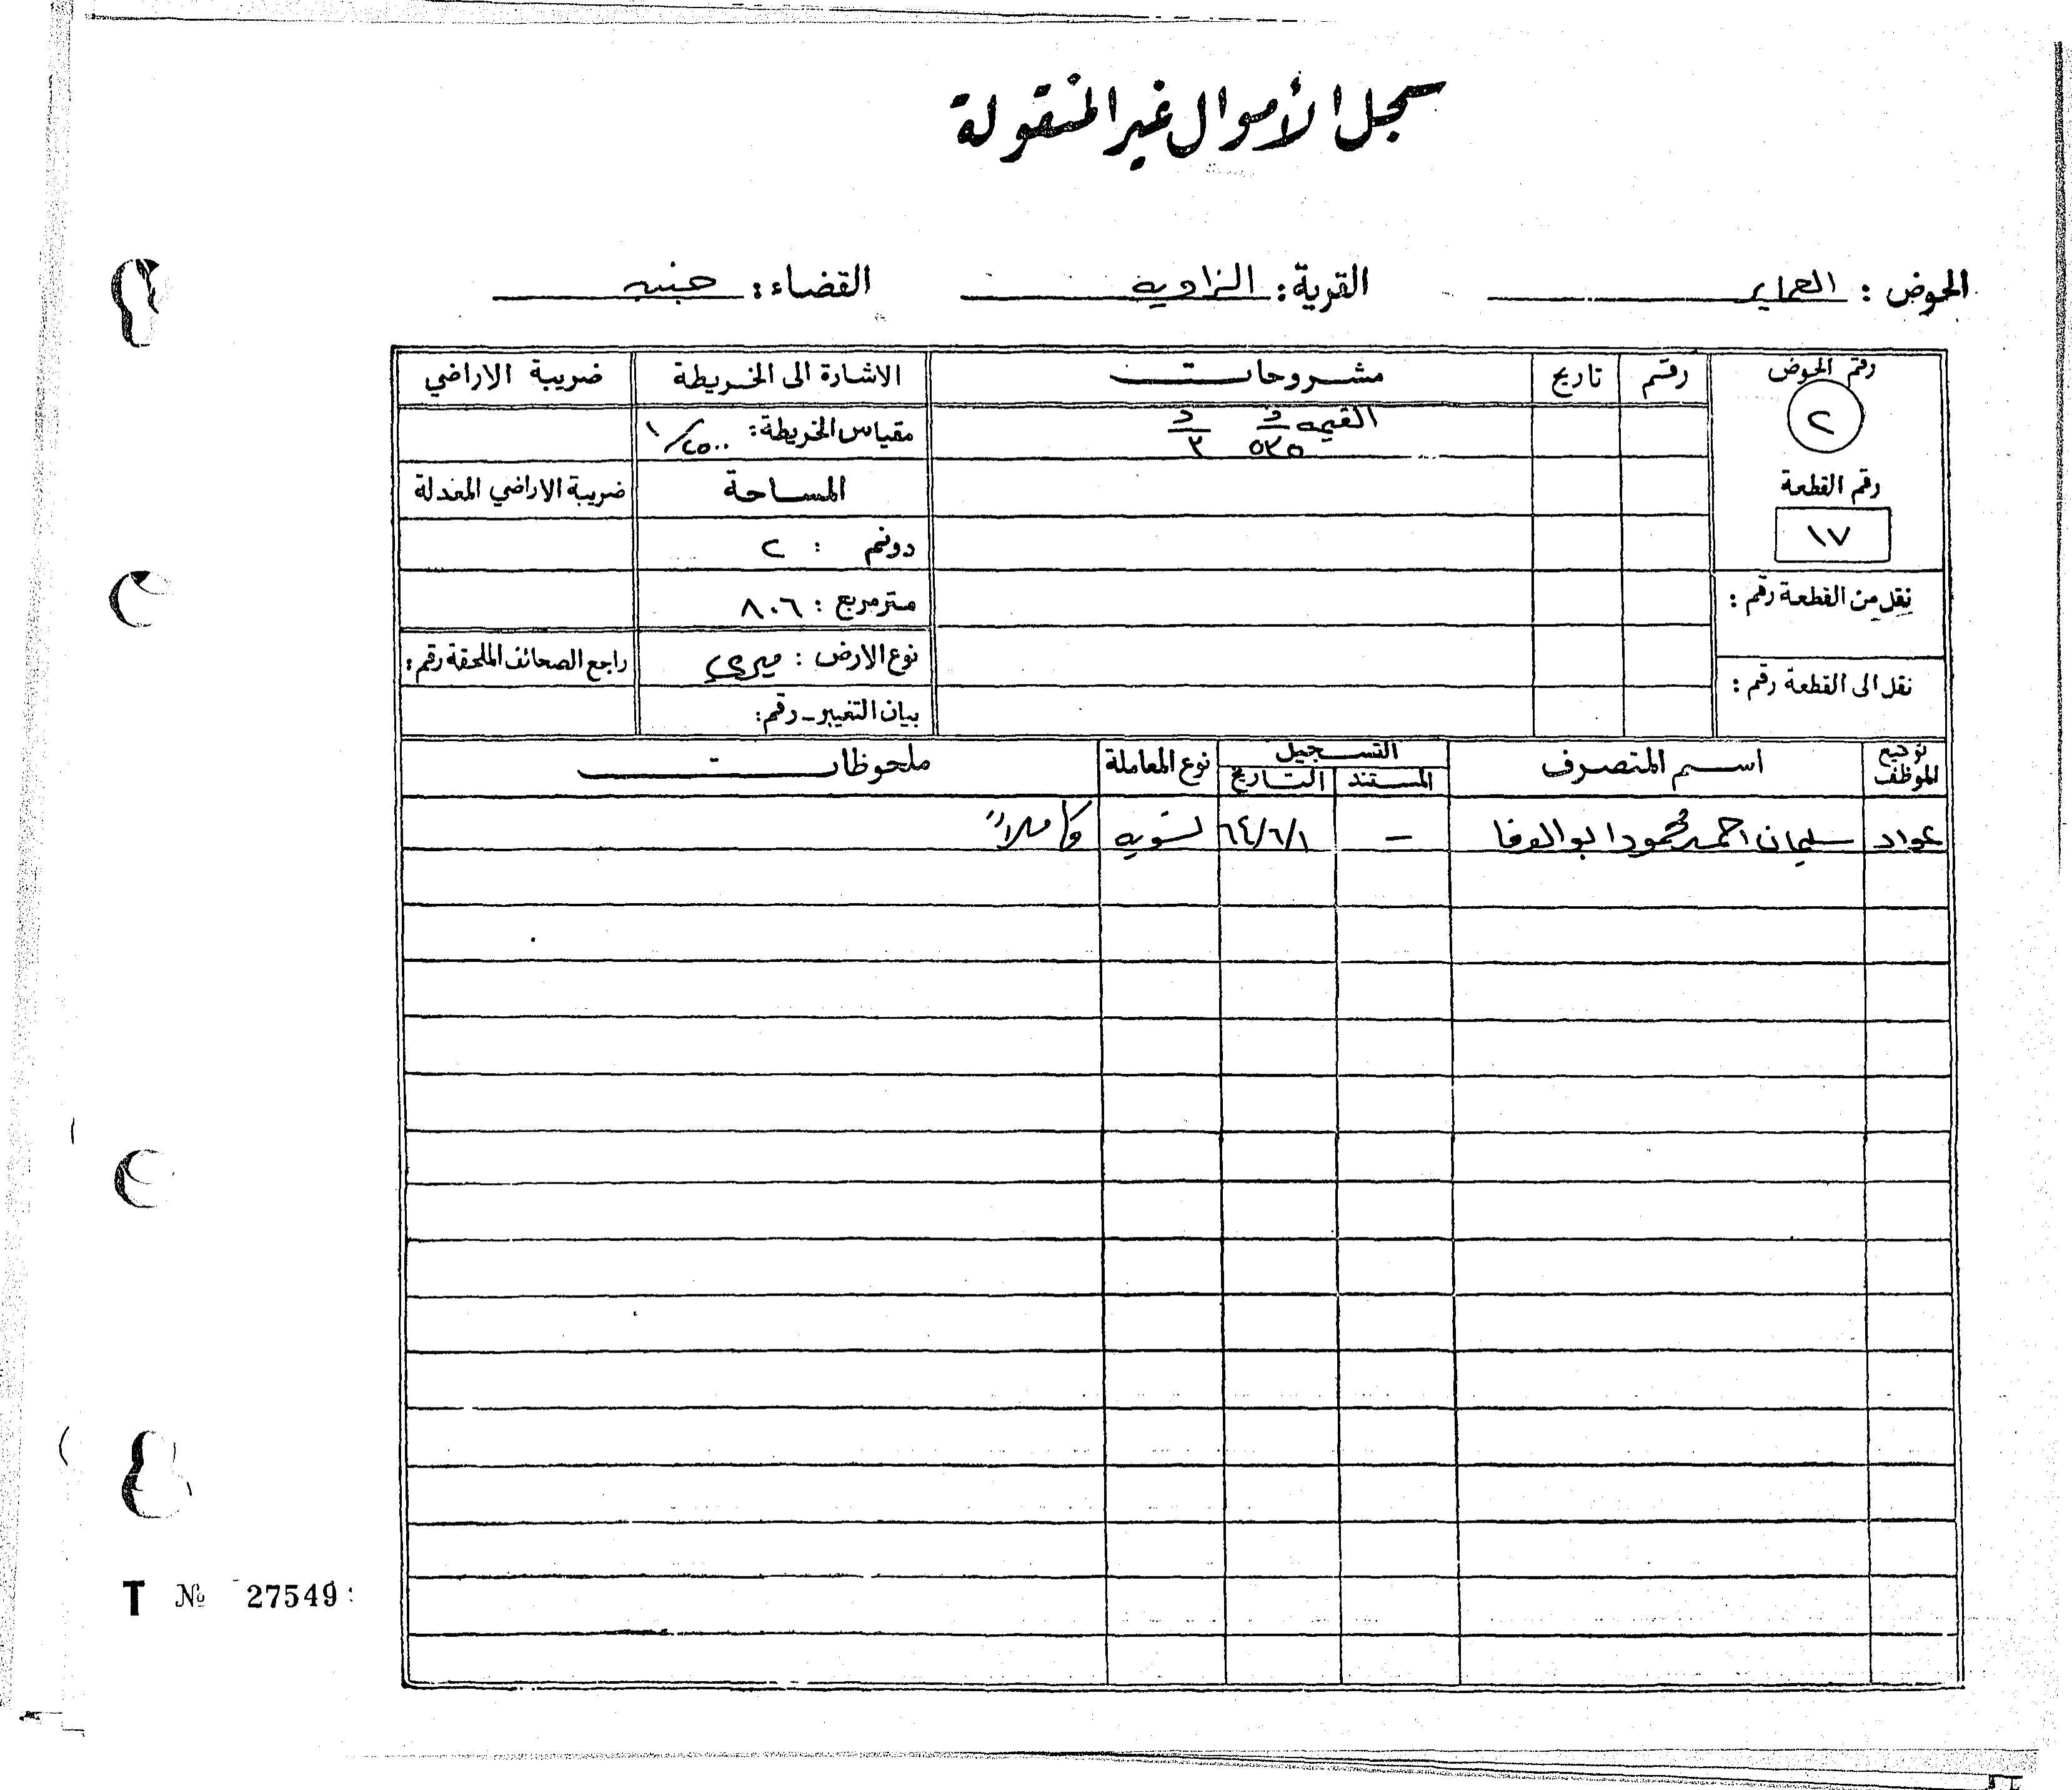 سجل الأموال غير المنقولة
الحوض : العماير القرية : الزاويه القضاء : جنين
رقم الحوض رقم تاريخ مشروحات الاشارة الى الخريطة ضريبة الاراضي
٢ القيمه ف د مقياس الخريطة : ١/٢٥٠٠
٥٢٥ ٢
رقم القطعة المساحة ضريبة الاراضي المعدلة
١٧ دونم : ٢
نقل من القطعة رقم : متر مربع : ٨٠٦
نقل الى القطعة رقم : نوع الارض : ميري راجع الصحائف الملحقة رقم :
بيان التغيير - رقم :
توقيع الموظف اسم المتصرف التسجيل نوع المعاملة ملحوظات
المستند التاريخ
عواد سليمان احمد محمود ابو الوفا - ٦٤/٦/١ تسويه كاملاً
T № 27549